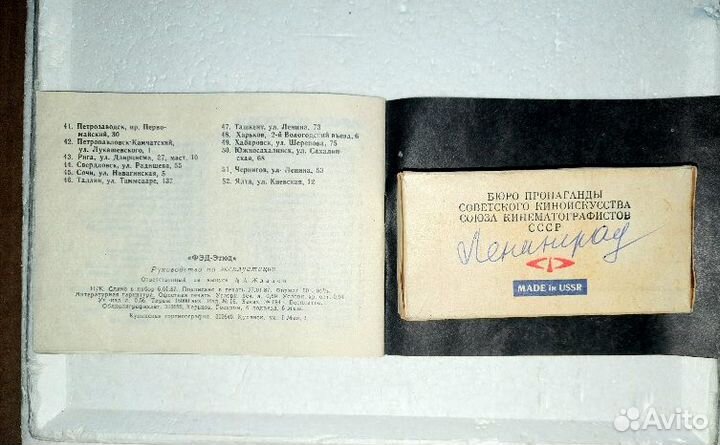 41. Петрозаводск, пр. Перво-
майский, 30
42. Петропавловск-Камчатский,
ул. Лукашевского, 1
43. Рига, ул. Дзирциема, 27, маст. 10
44. Свердловск, ул. Радищева, 55
45. Сочи, ул. Навагинская, 5
46. Таллин, ул. Таммсааре, 137
47. Ташкент, ул. Ленина, 73
48. Харьков, 2-й Вологодский въезд, 6
49. Хабаровск, ул. Шеронова, 75
50. Южносахалинск, ул. Сахалин-
ская, 68
51. Чернигов, ул. Ленина, 53
52. Ялта, ул. Киевская, 12
«ФЭД-Этюд»
Руководство по эксплуатации
Ответственный за выпуск
Сдано в набор 6.01.87. Подписано в печать Формат
Литературная гарнитура. Офсетная печать.
Бесплатно.
Купянская гортипография.
БЮРО ПРОПАГАНДЫ
СОВЕТСКОГО КИНОИСКУССТВА
СОЮЗА КИНЕМАТОГРАФИСТОВ
СССР
Ленинград
MADE in USSR
Avito